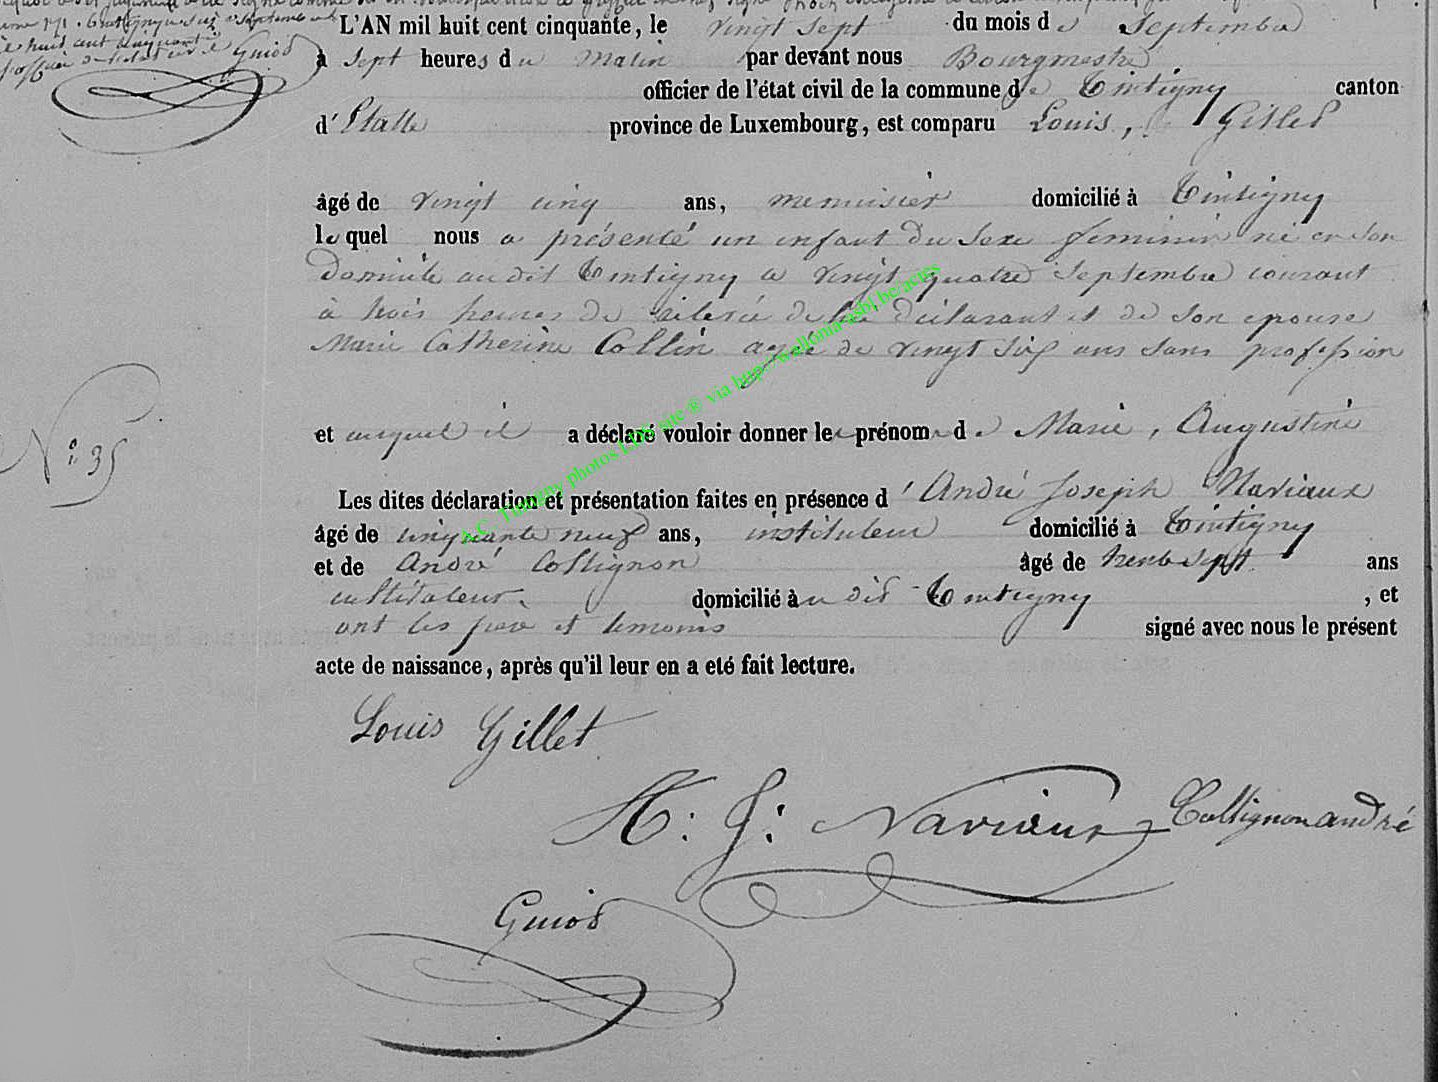 L'AN mil huit cent cinquante, le vingt sept du mois de Septembre
à sept heures du matin par devant nous Bourgmestre
officier de l'état civil de la commune de Tintigny canton
d'Etalle province de Luxembourg, est comparu Louis, Gillet
âgé de vingt cinq ans, menuisier domicilié à Tintigny
lequel nous a présenté un enfant du sexe feminin né en son
domicile au dit Tintigny le vingt quatre Septembre courant
à trois heures de de lui déclarant et de son epouse
Marie Catherine Collin agée de vingt six ans sans profession
et auquel il a déclaré vouloir donner les prénoms de Marie, Augustine
Les dites déclaration et présentation faites en présence d'André Joseph Naviaux
âgé de cinquante neuf ans, instituteur domicilié à Tintigny
et de André Collignon âgé de trente sept ans
cultivateur domicilié au dit Tintigny, et
ont les père et temoins signé avec nous le présent
acte de naissance, après qu'il leur en a eté fait lecture.
N° 35
Louis Gillet
A: J: Naviaux
Collignon andré
Guiot
Guiot
A.C. Tintigny photos LDS site ® via http://wallonia-asbl.be/actes